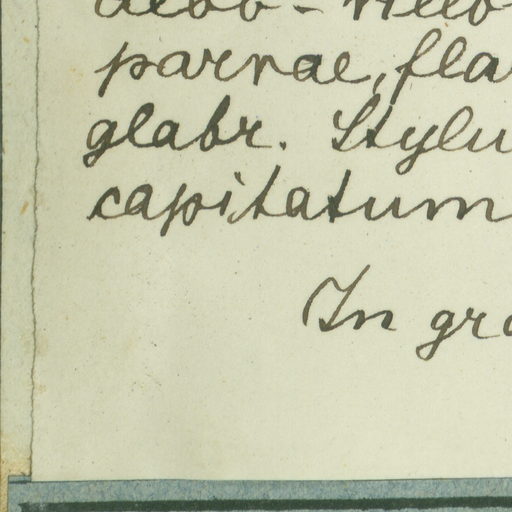 parvae, fla
glabr. Stylu
capitatum
In gr